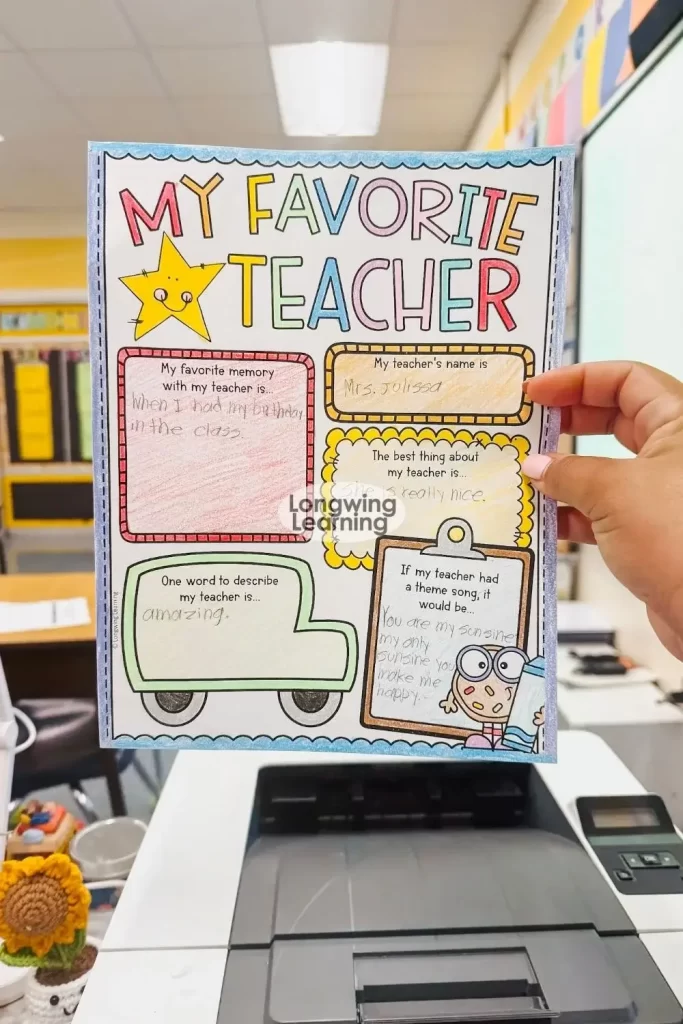 MY FAVORITE
TEACHER
My favorite memory
with my teacher is...
When I had my birthday
in the class.
My teacher's name is
Mrs. Julissa
The best thing about
my teacher is...
She is really nice.
Longwing
Learning
One word to describe
my teacher is...
amazing.
If my teacher had
a theme song, it
would be...
You are my sunsine
my only
sunsine you
make me
happy.
©Longwing Learning